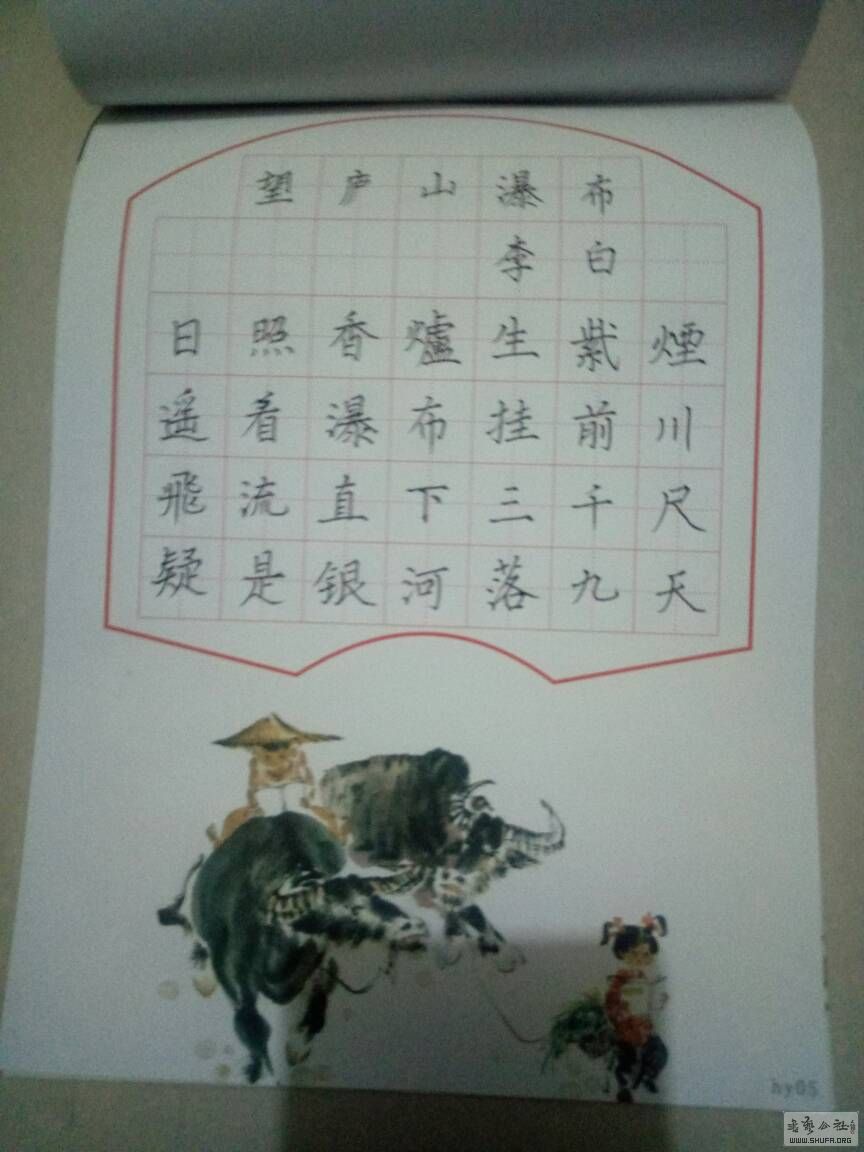 望庐山瀑布
李白
日照香爐生紫煙
遥看瀑布挂前川
飛流直下三千尺
疑是银河落九天
hy05
WWW.SHUFA.ORG